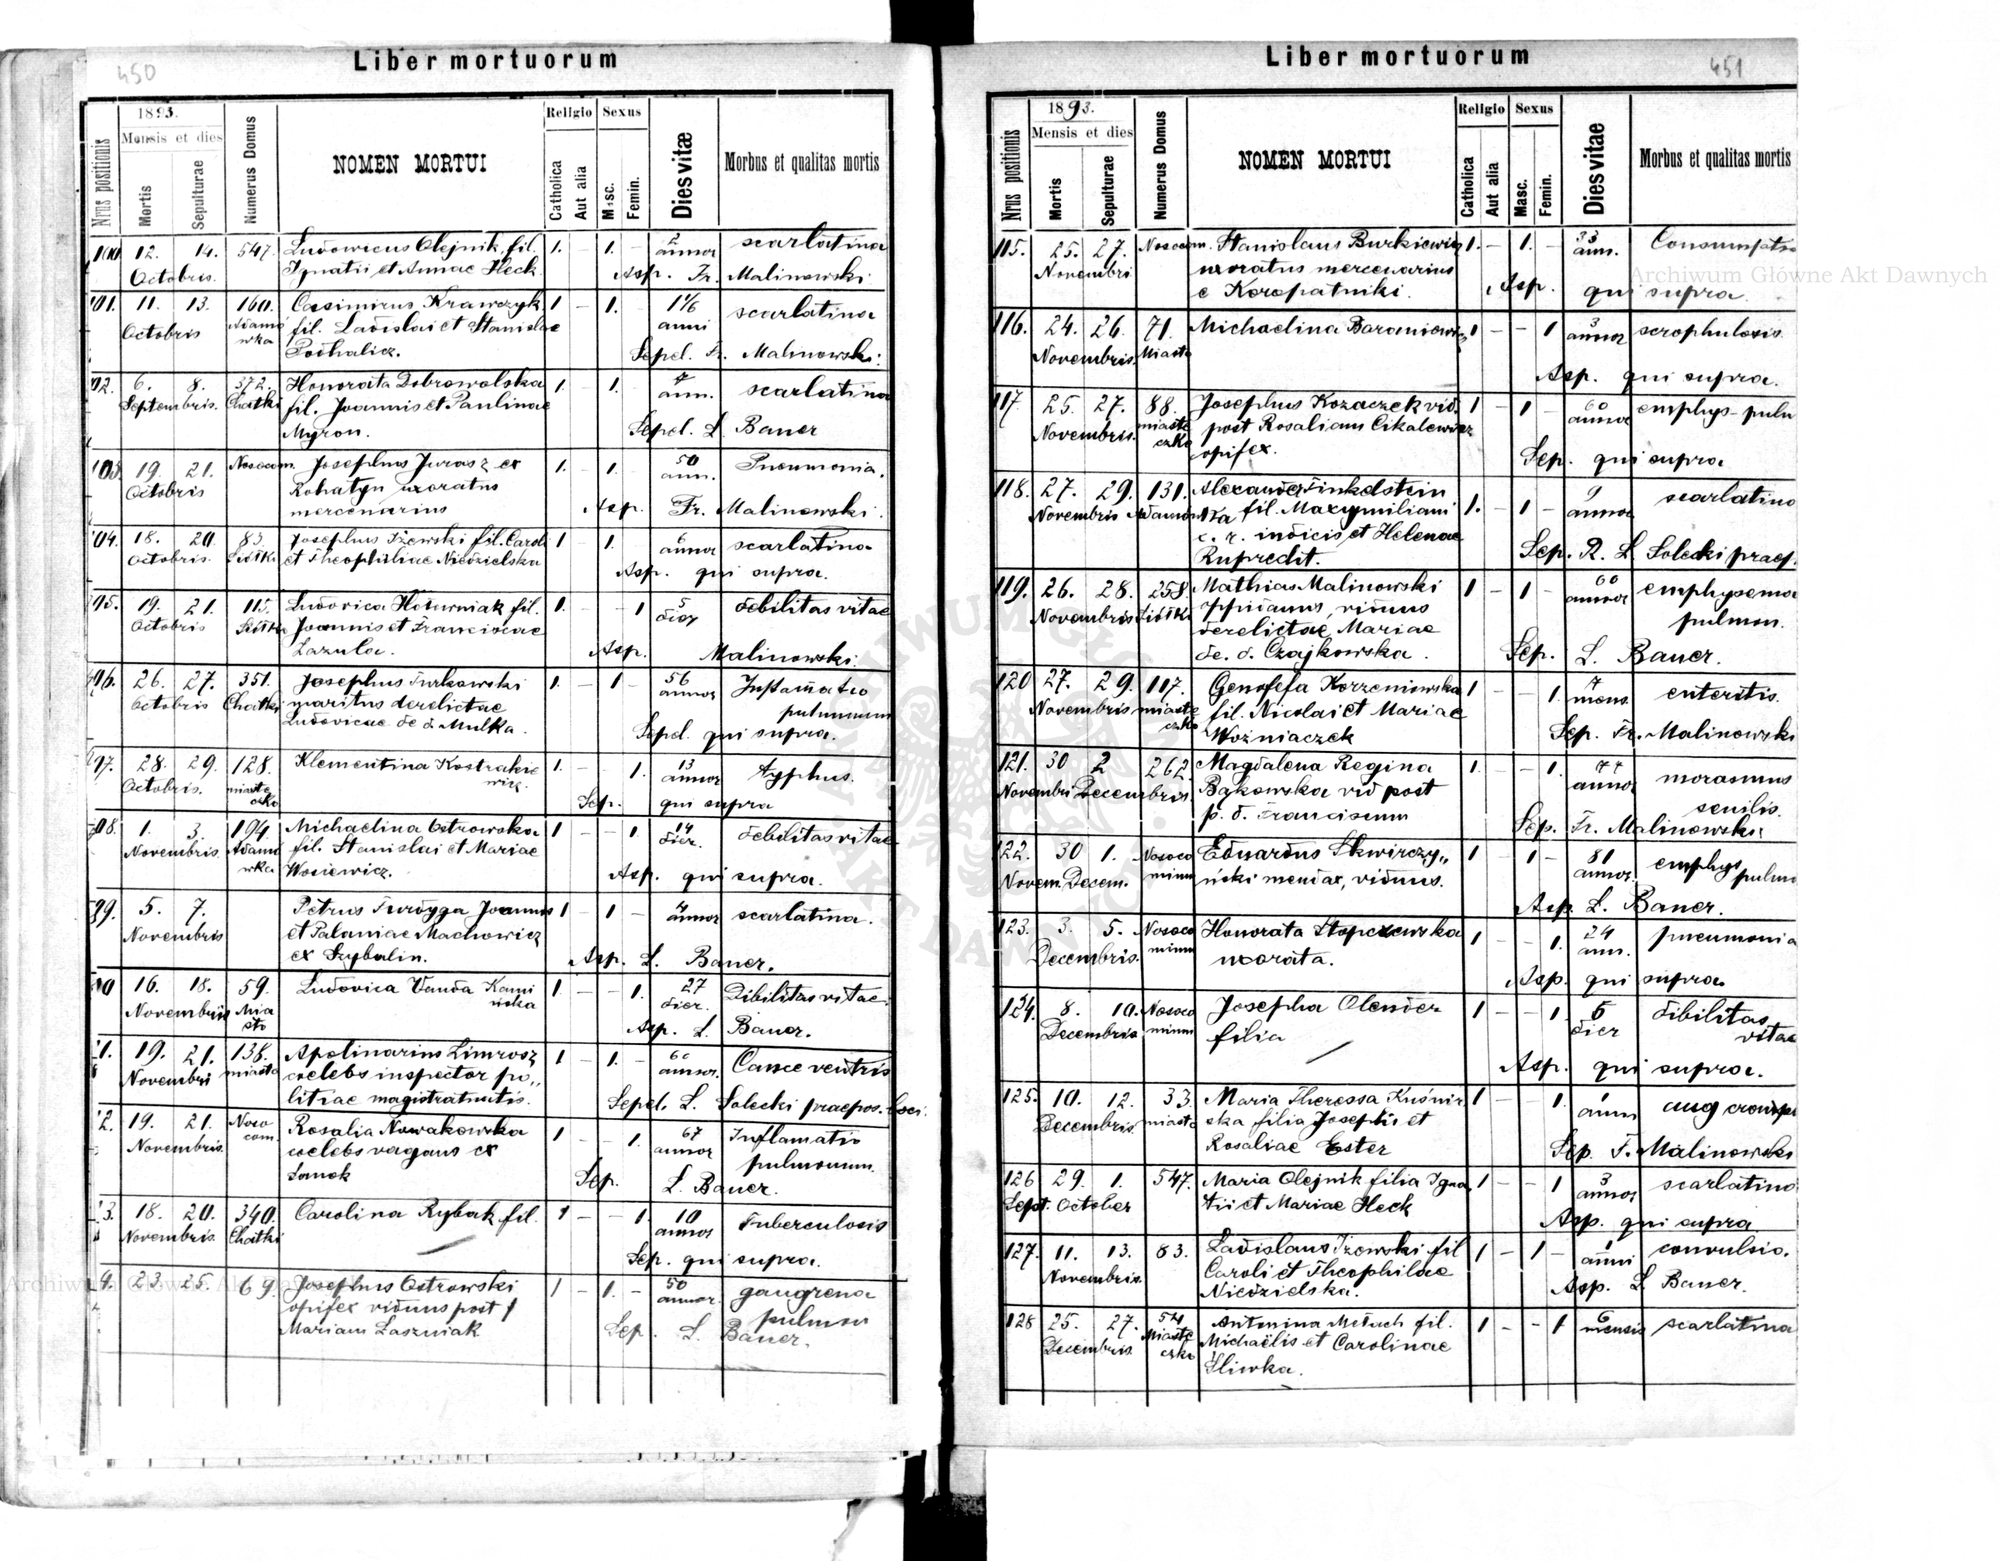 450
Liber mortuorum
1893.
Mensis et dies
Nrus positionis
Mortis
Sepulturae
Numerus Domus
NOMEN MORTUI
Religio
Catholica
Aut alia
Sexus
Masc.
Femin.
Dies vitae
Morbus et qualitas mortis
12. 14. 547. Ludowicus Olejnik fil. 1. – 1. – 2 scarlatina
Octobris. Ignatii et Annae Heck. annor
Asp. Fr. Malinowski
01. 11. 13. 160. Casimirus Krawczyk 1 – 1. – 1 1/6 scarlatina
Octobris Adamówka fil. Ladislai et Stanislae anni
Podhalicz.
Sepel. Fr. Malinowski.
02. 6. 8. 372. Honorata Dobrowolska 1. – 1. 4 scarlatina
Septembris. Chatki fil. Joannis et Paulinae ann.
Myron.
Sepel. L. Bauer
03. 19. 21. Nosocom. Josephus Jurasz ex 1. – 1. – 50 Pneumonia.
Octobris Rohatyn uxoratus ann.
mercenarius Asp. Fr. Malinowski.
04. 18. 20. 83. Josephus Iżewski fil. Caroli 1 – 1. – 6 scarlatina
Octobris. Siółko et Theophiliae Niedzielska annor
Asp. qui supra.
05. 19. 21. 115. Ludovica Hoturniak fil. 1. – – 1 5 debilitas vitae
Octobris Siółko Joannis et Franciscae dier
Lazula. Asp. Malinowski.
06. 26. 27. 351. Josephus Turkowski 1. – 1 – 56 Inflamatio
Octobris Chatki maritus derelictae annor pulmonum
Ludovicae de d. Mulka. Sepel. qui supra.
07. 28. 29. 128. Klementina Kostrakiewicz. 1. – – 1. 13 typhus.
Octobris. miasteczko annor
Sep. qui supra
08. 1. 3. 194. Michaelina Ostrowska 1 – – 1. 14 debilitas vitae
Novembris. Adamówka fil. Stanislai et Mariae dier.
Wosiewicz. Asp. qui supra.
09. 5. 7. Petrus Turdyga Joannis 1 – 1 – 4 scarlatina.
Novembris et Palaniae Machowicz annor
ex Szybalin. Asp. L. Bauer.
10 16. 18. 59. Ludovica Wanda Kamińska 1. – – 1. 27 Dibilitas vitae.
Novembris Miasto dier.
Asp. L. Bauer.
1. 19. 21. 138. Apolinarius Limrosz 1 – 1. – 60 Cance ventris
Novembri miasto coelebs inspector po„ annor.
litiae magistratuitis. Sepel. L. Solecki praepos. loci.
2. 19. 21. Nosocom. Rosalia Nowakowska 1 – – 1. 67 Inflamatio
Novembris. coelebs vagans ex annor pulmonum.
Sanok Sep. L. Bauer.
3. 18. 20. 340. Carolina Rybak fil. 1 – – 1. 10 Tuberculosis
Novembris. Chatki annor
Sep. qui supra.
4. 23. 25. 69. Josephus Ostrowski 1 – 1. – 50 gangrena
opifex viduus post annor. pulmon
Mariam Laszniak Sep. L. Bauer.
451
Liber mortuorum
1893.
Mensis et dies
Nrus positionis
Mortis
Sepulturae
Numerus Domus
NOMEN MORTUI
Religio
Catholica
Aut alia
Sexus
Masc.
Femin.
Dies vitae
Morbus et qualitas mortis
115. 25. 27. Nosocom. Stanislaus Burkiewicz 1. – 1. – 33 Consumptio
Novembri uxoratus mercenarius ann.
e Koropatniki. Asp. qui supra.
116. 24. 26. 71. Michaelina Baraniewicz 1 – – 1 3 scrophulosis.
Novembris. Miasto annor
Asp. qui supra.
117. 25. 27. 88. Josephus Kozaczek vid. 1 – 1 – 60 emphys-pulm
Novembris. miasteczko post Rosaliam Cikalewicz annor
opifex. Sep. qui supra
118. 27. 29. 131. Alexander Finkelstein 1. – 1 – 9 scarlatina
Novembris Adamówka fil. Maxymiliani annor
c. r. indicis et Helenae
Ruprecht. Sep. R. L. Solecki praep.
119. 26. 28. 258. Mathias Malinowski 1 – 1 – 60 emphysema
Novembris Siółko oppidanus, viduus annor pulmon.
derelictae Mariae
de. d. Czajkowska. Sep. L. Bauer.
120 27. 29. 117. Genofefa Korzeniowska 1 – – 1. 7 enteritis.
Novembris miasteczko fil. Nicolai et Mariae mens.
Woźniaczek Sep. Fr. Malinowski
121. 30 2 262. Magdalena Regina 1. – – 1. 77 morasmus
Novembri Decembris. Bąkowska vid post annor senilis.
p. d. Franciscum Sep. Fr. Malinowski
122. 30 1. Nosocominm Eduardus Skwirczy„ 1 – 1 – 81 emphys
Novem. Decem. ński mendax, viduus. annor. pulm
Asp. L. Bauer.
123. 3. 5. Nosocominm Honorata Stopczewska 1 – – 1. 24 pneumonia
Decembris. uxorata. ann.
Asp. qui supra
124. 8. 10. Nosocominm Josepha Olender 1 – – 1. 6 dibilitas
Decembris filia dier vitae
Asp. qui supra.
125. 10. 12. 33. Maria Theressa Kuśnir 1 – – 1. 1
Decembris. miasto ska filia Josephi et anni
Rosaliae Ester Sep. F. Malinowski
126 29. 1. 547. Maria Olejnik filia Igna 1 – – 1 3 scarlatina
Sept. October tii et Mariae Heck annor
Asp. qui supra
127. 11. 13. 83. Ladislaus Iżewski fil 1 – 1 – 1 convulsio.
Novembris. Caroli et Theophilae anni
Niedzielska. Asp. L. Bauer.
128 25. 27. 54 Antonina Metuch fil. 1 – – 1 6 scarlatina
Decembris. Miasteczko Michaëlis et Carolinae mensis
Śliwka.
Archiwum Główne Akt Dawnych